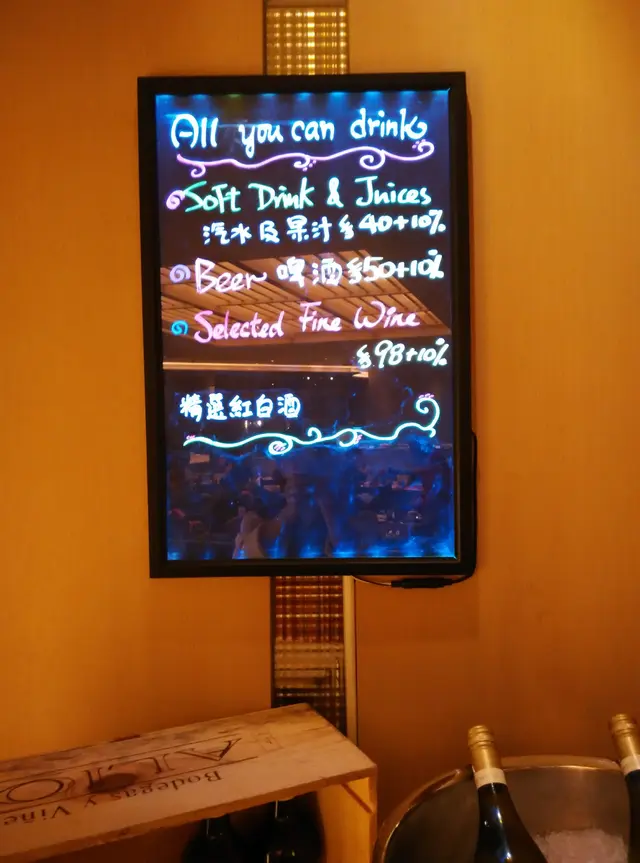 All you can drink
Soft Drink & Juices
汽水及果汁 $40+10%
Beer 啤酒 $50+10%
Selected Fine Wine
$98+10%
精選紅白酒
Bodegas y Viñe